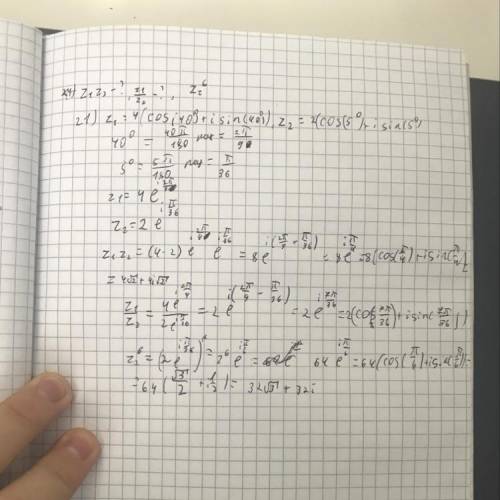 z₁z₂ - ?, z₁/z₂ - ?, z₂⁶
21) z₁ = 4(cos(40⁰) + i sin(40⁰)), z₂ = 2(cos(5⁰) + i sin(5⁰)
40⁰ = 40π/180 = 2π/9
5⁰ = 5π/180 = π/36
z₁ = 4e^(i 2π/9)
z₂ = 2e^(i π/36)
z₁z₂ = (4·2) e^(i 2π/9) e^(i π/36) = 8e^(i(2π/9 - π/36)) = 8e^(i π/4) = 8(cos(π/4) + i sin(π/4)
= 4√2 + 4i√2
z₁/z₂ = = 2e^(i(2π/9 - π/36)) = 2e^(i 7π/36) = 2(cos(7π/36) + i sin(7π/36))
z₂⁶ = (2e^(i π/36))⁶ = 2⁶e^(i π/6) = 64e^(i π/6) = 64(cos(π/6) + i sin(π/6)) =
= 64(√3/2 + i/2) = 32√3 + 32i